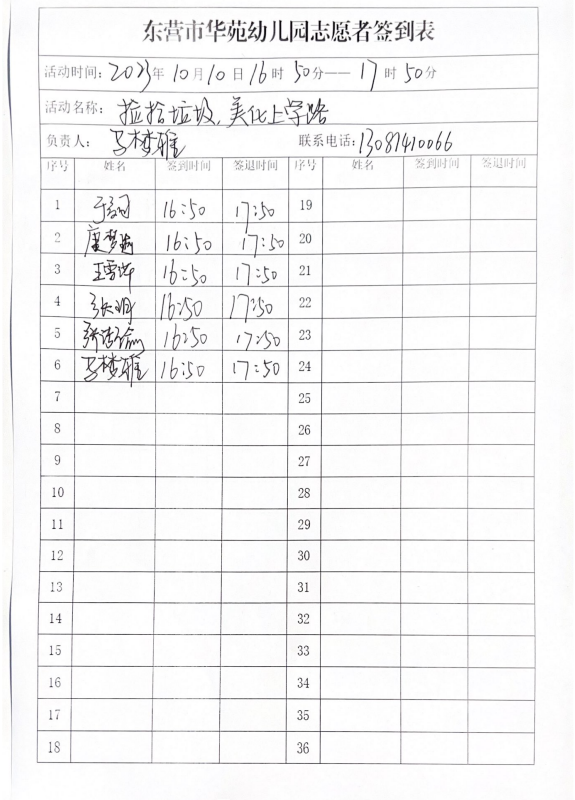 东营市华苑幼儿园志愿者签到表
活动时间: 2023年 10月 10日 16时 50分—— 17时 50分
活动名称: 捡拾垃圾,美化上学路
负责人: 马梦雅 联系电话: 13081410066
序号 姓名 签到时间 签退时间 序号 姓名 签到时间 签退时间
1 16:50 17:50 19
2 16:50 17:50 20
3 王雪萍 16:50 17:50 21
4 张明 16:50 17:50 22
5 16:50 17:50 23
6 马梦雅 16:50 17:50 24
7 25
8 26
9 27
10 28
11 29
12 30
13 31
14 32
15 33
16 34
17 35
18 36